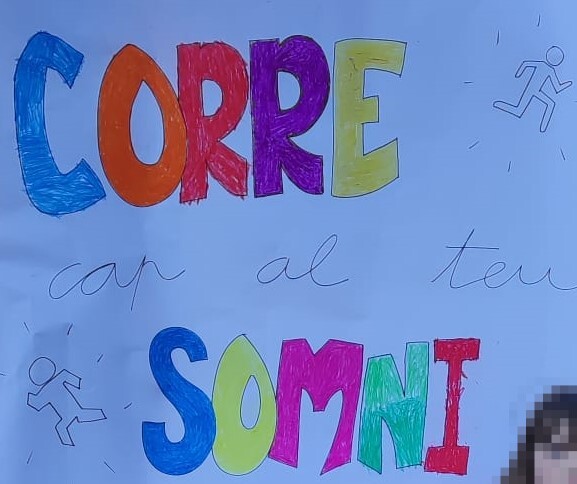 CORRE
cap al teu
SOMNI